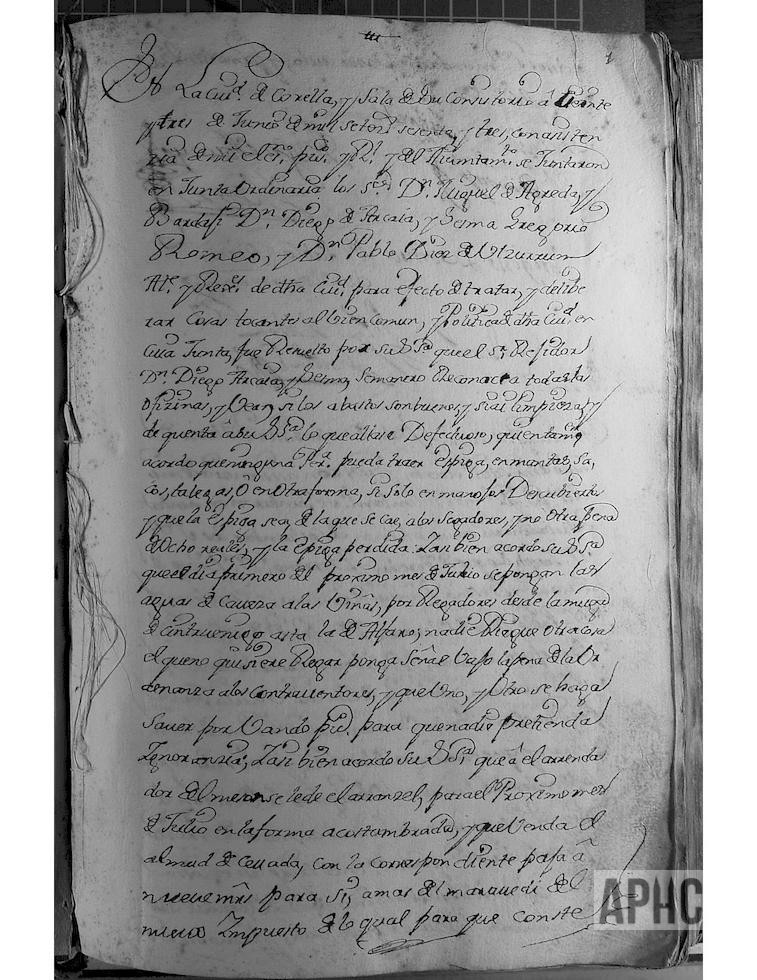 1
En La Ciud. de Corella, y Sala de su Consistorio â Veinte
y tres de Junio de mil setez.s sesenta, y tres, con asisten
zia de mi el ess.no pu.co y R.l y del Aiuntam.to se Juntaron
en Junta Ordinaria los s.res D.n Miguel de Agreda, y
Bardaji D.n Diego de Arcaia, y Sesma Gregorio
Romeo, y D.n Pablo Diez de Ulzurrun
Al.e y Rexi.s de dha Ciu.d para efecto de tratar, y delibe
rar Cosas tocantes al bien comun, y Politica de dha Ciu.d en
Cuia Junta, fue Resuelto por su S.a que el s.r Rejidor
D.n Diego Arcaia, y Sesma, Semanero Reconozca todas las
ofizinas, y Vea si los abastos son buenos, y si ai limpieza, y
de quenta â su S.a lo que allase Defectuoso, que entam.n
acordo que ninguna Per.a pueda traer espiga, en mantas, Sa
cos, talegas, O en Otra forma, si solo en manojos Descubiertos
y que la espiga sea, de la que se cae, a los segadores, y no Otra pena
de Ocho reales, y la espiga perdida. Y asi bien acordo su S.a
que el dia primero del proximo mes de Julio se pongan las
aguas de Caveza a las Viñas, por Regadores desde la muga
de Cintruenigo asta la de Alfaro, nadie Riegue Otra Cosa
el que no quisiere Regar ponga Señal Vajo la pena de la Or
denanza a los Contraventores, y que Uno, y Otro se haga
Saver por Vando pu.co para que nadie pretenda
Ygnoranzia, Y asi bien acordo su S.a que â el arrenda
dor del meson se le de el arranzel, para el Proximo mes
de Julio en la forma acostumbrada, y que Venda el
almud de Cevada, con la correspondiente paja â
nueve mrs para si, amas del maravedi del
nuevo Ympuesto de lo qual para que Conste
APHC